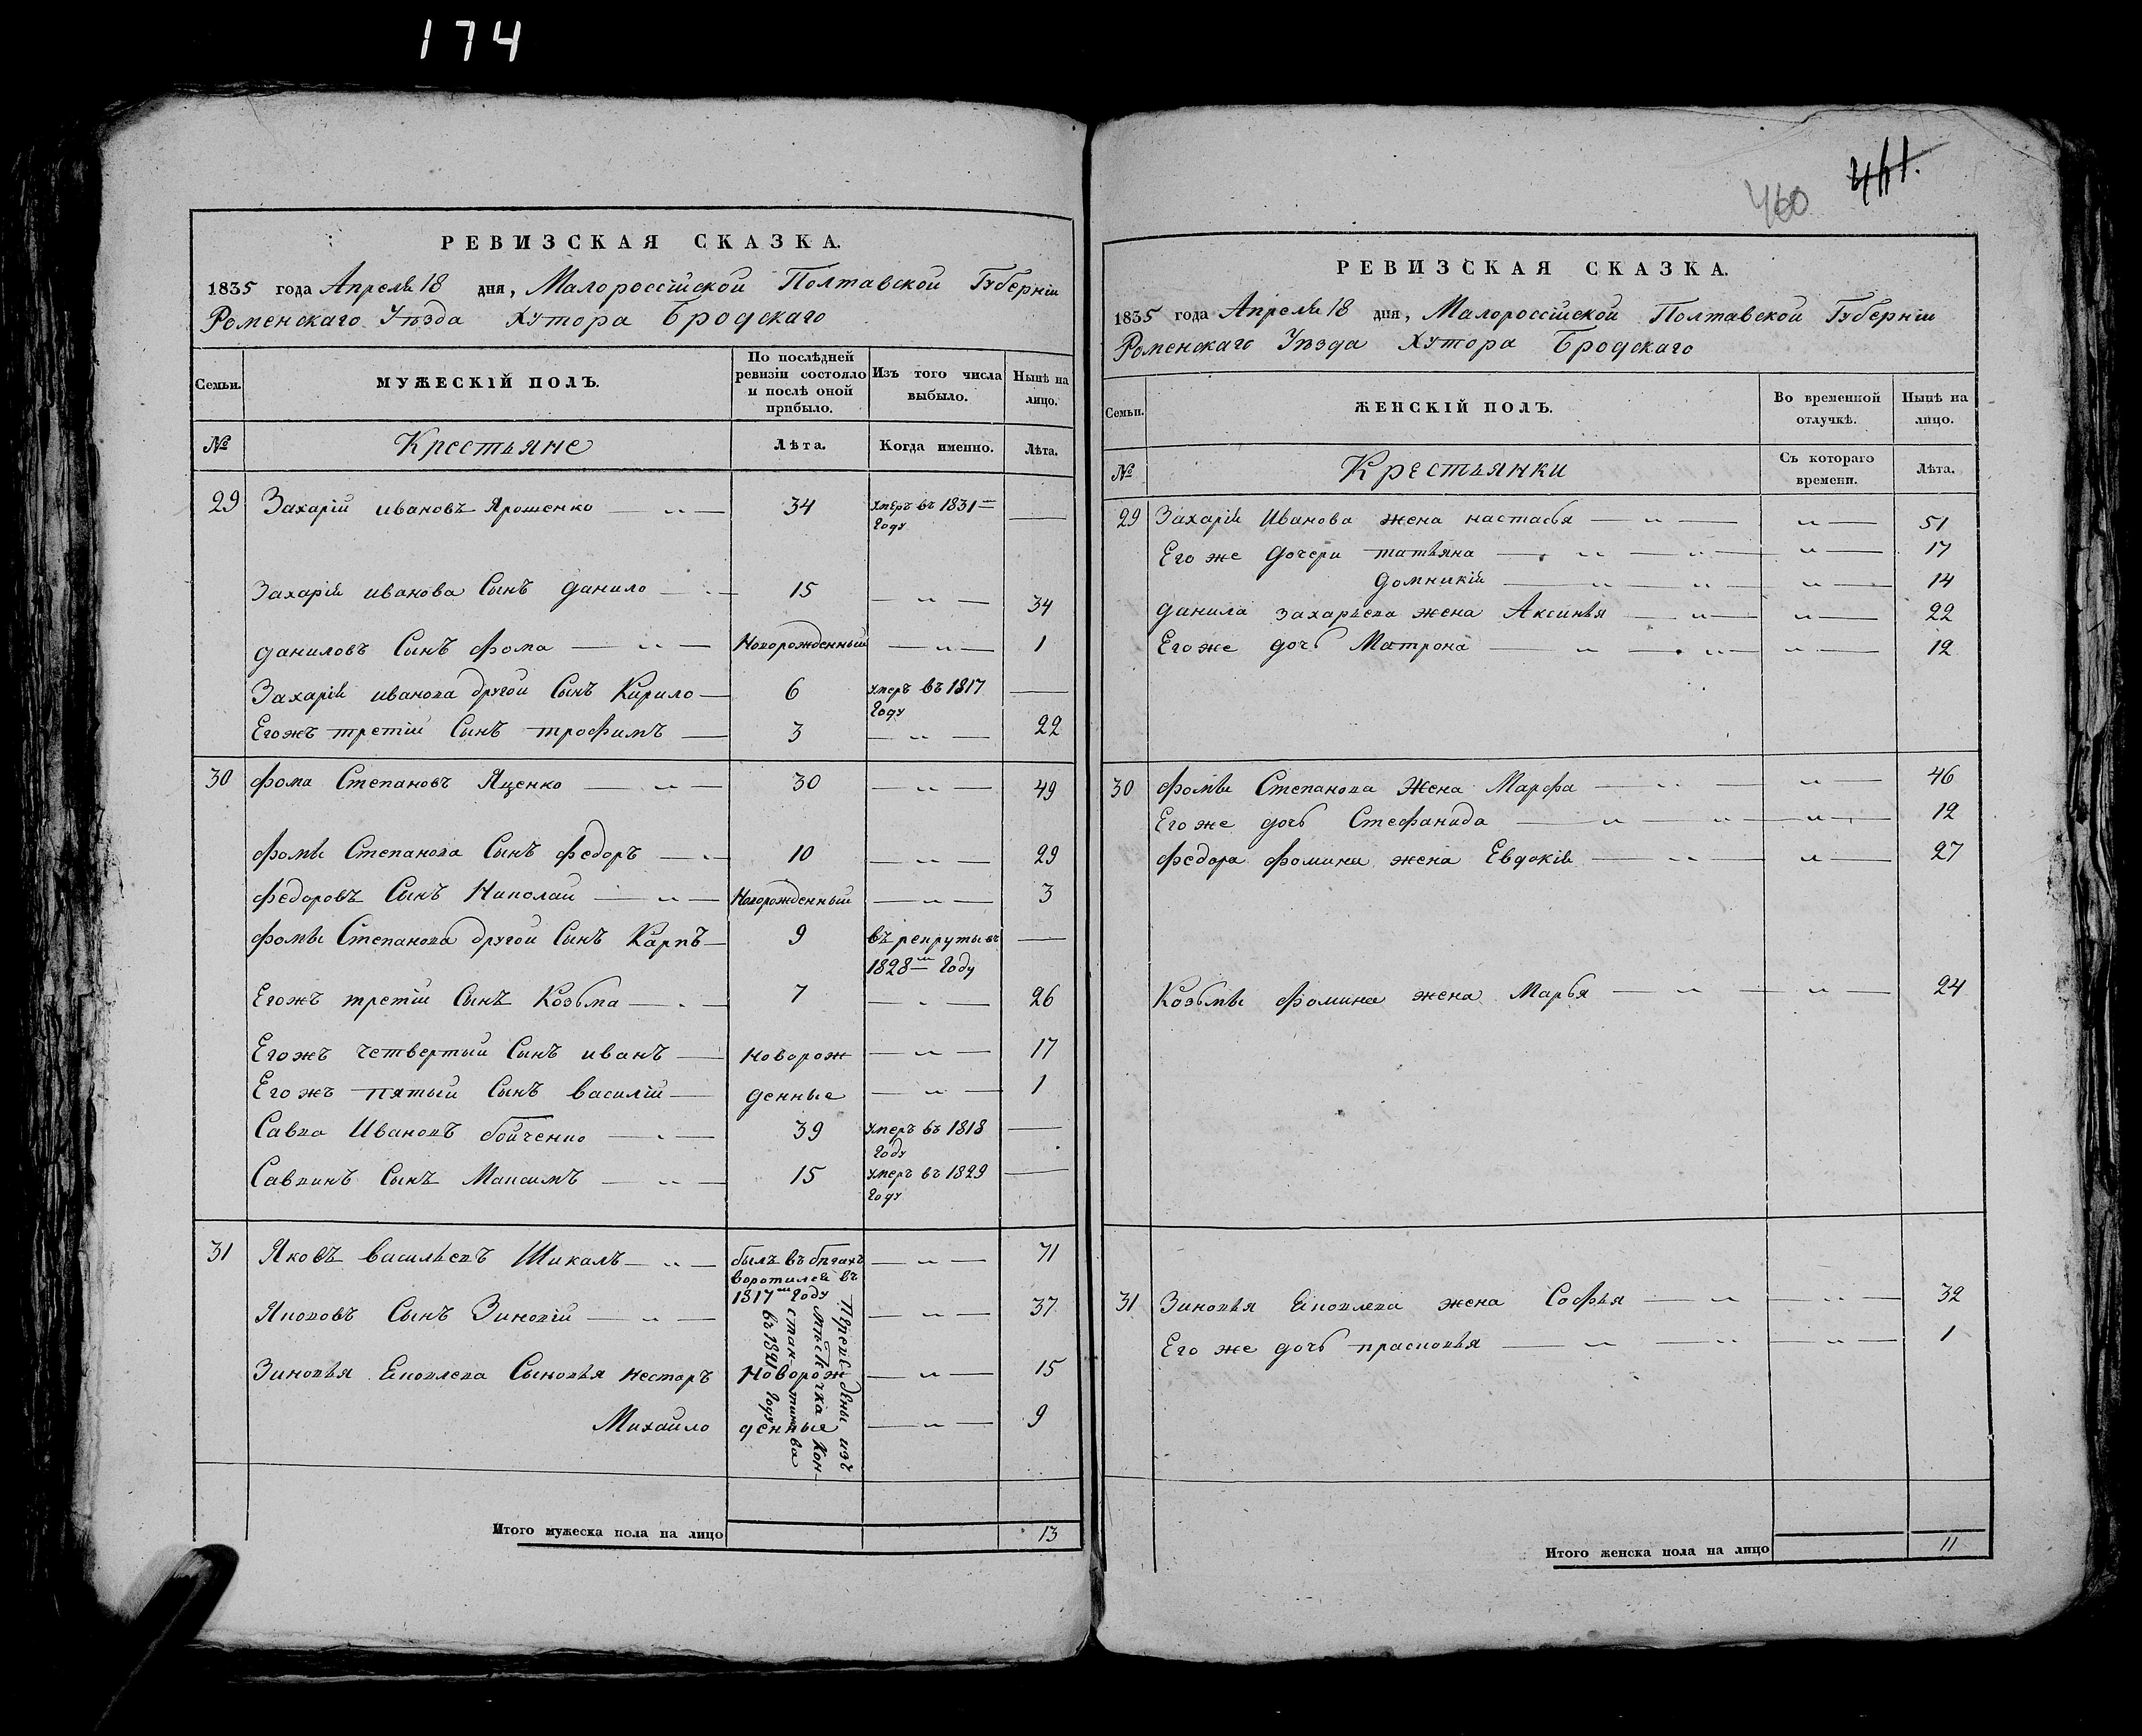 174
РЕВИЗСКАЯ СКАЗКА.
1835 года Апреля 18 дня, Малороссійской Полтавской Губерніи
Роменскаго Уѣзда Хутора Бродскаго
Семьи.
МУЖЕСКІЙ ПОЛЪ.
По послѣдней
ревизіи состояло
и послѣ оной
прибыло.
Изъ того числа
выбыло.
Нынѣ на
лицо.
№ Крестьяне Лѣта. Когда именно. Лѣта.
29 Захарій ивановъ Ярошенко 34 умеръ въ 1831
году
Захарія иванова Сынъ данило 15 34
даниловъ Сынъ фома Новорожденный 1
Захарія иванова другой Сынъ Кирило 6 умеръ въ 1817
году
Егожъ третій Сынъ трофимъ 3 22
30 фома Степановъ Яценко 30 49
фомы Степанова Сынъ федоръ 10 29
федоровъ Сынъ Николай Новорожденный 3
фомы Степанова другой Сынъ Карпъ 9 въ рекруты въ
1828 году
Егожъ третій Сынъ Козьма 7 26
Егожъ четвертый Сынъ иванъ новорож 17
Егожъ пятый Сынъ василій денные 1
Савва Ивановъ бойченко 39 умеръ въ 1818
году
Саввинъ Сынъ Максимъ 15 умеръ въ 1829
году
31 Яковъ васильевъ Шикалъ былъ въ бѣгахъ 71
воротился въ
1817 году
Якововъ Сынъ Зиновій 37
Зиновья Яковлева Сыновья несторъ Новорож 15
Михайло денные 9
Переведены изъ
мѣстечка Кон
стантинова
въ 1821 году
Итого мужеска пола на лицо 13
460 461.
РЕВИЗСКАЯ СКАЗКА.
1835 года Апреля 18 дня, Малороссійской Полтавской Губерніи
Роменскаго Уѣзда Хутора Бродскаго
Семьи.
ЖЕНСКІЙ ПОЛЪ.
Во временной
отлучкѣ.
Нынѣ на
лицо.
№ Крестьянки
Съ котораго
времени.
Лѣта.
29 Захарія Иванова жена настасья 51
Его же дочери татьяна 17
домникія 14
данила захарьева жена Аксинья 22
Его же дочь Матрона 12
30 фомы Степанова Жена Марфа 46
Его же дочь Стефанида 12
федора фомина жена Евдокія 27
Козьмы фомина жена Марья 24
31 Зиновья Яковлева жена Софья 32
Его же дочь прасковья 1
Итого женска пола на лицо 11